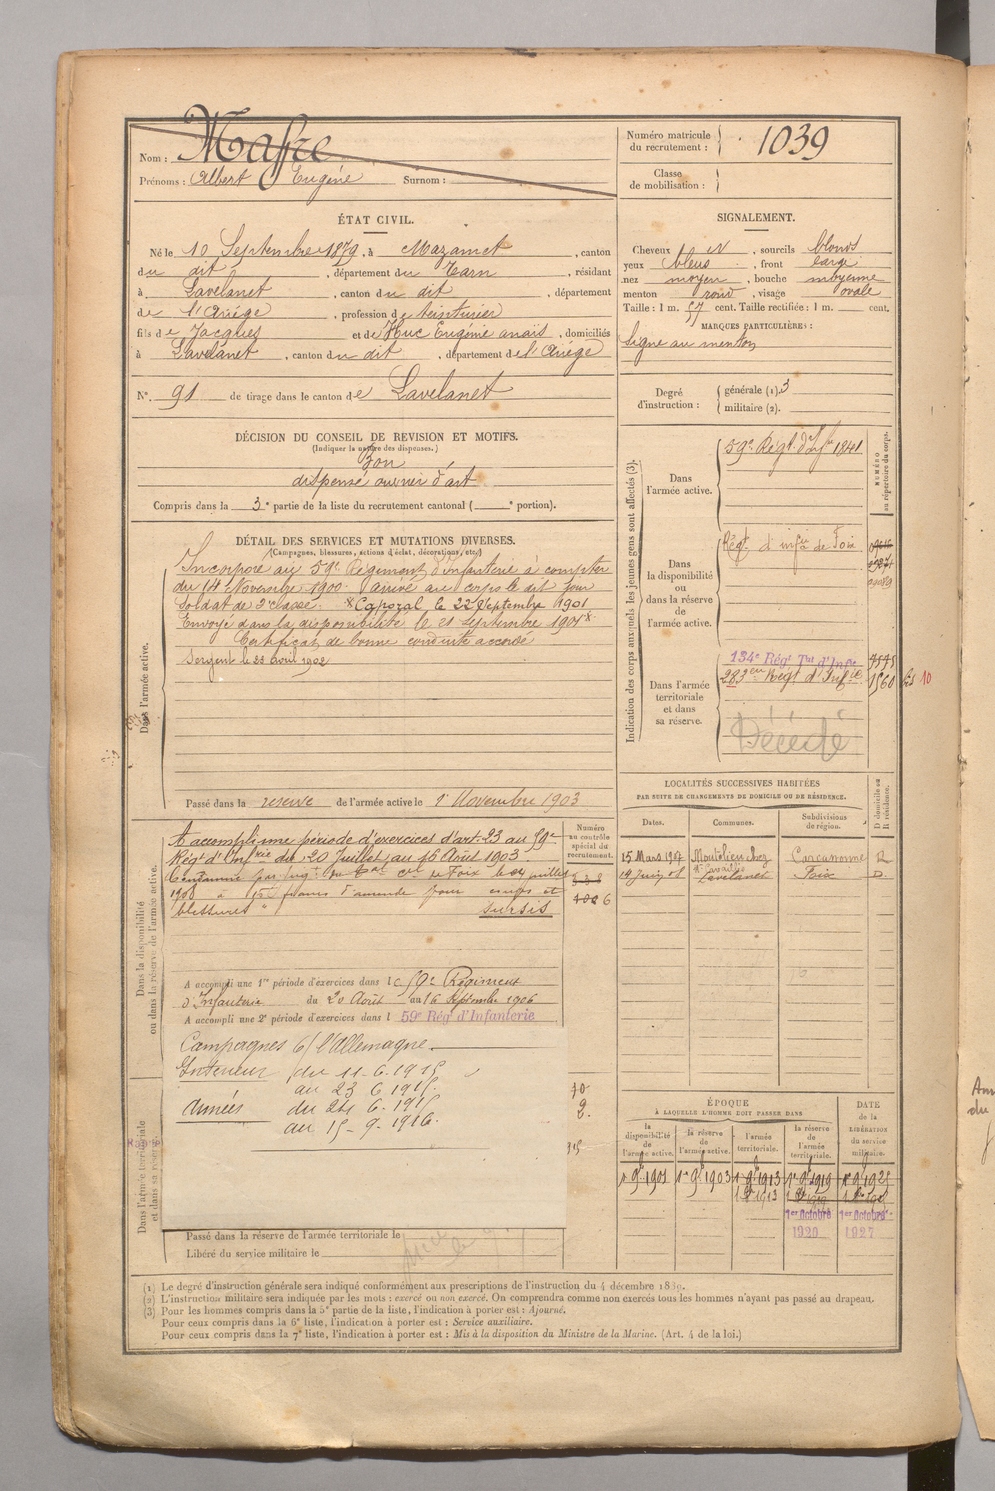 Nom : Mafre
Prénoms : Albert Eugéne Surnom :
Numéro matricule du recrutement : 1039
Classe de mobilisation :
ÉTAT CIVIL.
Né le 10 Septembre 1879, à Mazamet, canton
du dit, département du Tarn, résidant
à Lavelanet, canton du dit, département
de l'Ariège, profession de teinturier
fils de Jacques et de Huc Eugénie anaïs, domiciliés
à Lavelanet, canton du dit, département de l'Ariège
N° 91 de tirage dans le canton de Lavelanet
SIGNALEMENT.
Cheveux, sourcils blonds
yeux bleus, front large
nez moyen, bouche moyenne
menton rond, visage ovale
Taille : 1 m. 57 cent. Taille rectifiée : 1 m. cent.
MARQUES PARTICULIÈRES :
Signe au menton
Degré d'instruction : générale (1). 3
militaire (2).
DÉCISION DU CONSEIL DE REVISION ET MOTIFS.
(Indiquer la nature des dispenses.)
Bon
dispensé ouvrier d'art
Compris dans la 3e partie de la liste du recrutement cantonal ( e portion).
DÉTAIL DES SERVICES ET MUTATIONS DIVERSES.
(Campagnes, blessures, actions d'éclat, décorations, etc.)
Dans l'armée active.
Incorporé au 59e Régiment d'Infanterie à compter
du 14 Novembre 1900. arrivé au corps le dit jour
soldat de 2e classe. Caporal le 22 Septembre 1901
Envoyé dans la disponibilité le 21 Septembre 1901
Certificat de bonne conduite accordé
Sergent le 23 avril 1902
Passé dans la reserve de l'armée active le 1er Novembre 1903
Indication des corps auxquels les jeunes gens sont affectés (3).
NUMÉRO au répertoire du corps.
Dans l'armée active.
59e Régt d'Infie 1841
Dans la disponibilité ou dans la réserve de l'armée active.
Régt d'infie de Foix
Dans l'armée territoriale et dans sa réserve.
134e Régt Tal d'Infie
283eme Régt d'Infie 1560
10
Décédé
Dans la disponibilité ou dans la réserve de l'armée active.
A accompli une période d'exercices d'art. 23 au 59e
Régt d'Infrie du 20 Juillet au 16 Août 1903.
Condamné par jugt du Foix le juillet
1908 à francs d'amende pour coups et
blessures sursis
Numéro au contrôle spécial du recrutement.
A accompli une 1re période d'exercices dans le 59e Régiment
d'Infanterie du 20 Août au 16 Septembre 1906
A accompli une 2e période d'exercices dans l 59e Régt d'Infanterie
Campagnes c/ l'Allemagne
Interieur du 11-6-1915
au 23 6 1915.
Armées du 24 6. 1915
au 15-9-1916.
Dans l'armée territoriale et sa réserve
Passé dans la réserve de l'armée territoriale le
Libéré du service militaire le
LOCALITÉS SUCCESSIVES HABITÉES
PAR SUITE DE CHANGEMENTS DE DOMICILE OU DE RÉSIDENCE.
Dates. Communes. Subdivisions de région. D domicile ou R résidence.
15 Mars 1907 Montolieu chez Mr Carcassonne R
19 Juin 08 Lavelanet Foix D
ÉPOQUE
À LAQUELLE L'HOMME DOIT PASSER DANS
DATE de la LIBÉRATION du service militaire.
la disponibilité de l'armée active. la réserve de l'armée active. l'armée territoriale. la réserve de l'armée territoriale.
1er 9bre 1901 1er 9bre 1903 1er 9bre 1913 1er 9bre 1919 1er 9bre 1925
1er Octobre 1920 1er Octobre 1927
(1) Le degré d'instruction générale sera indiqué conformément aux prescriptions de l'instruction du 4 décembre 1889.
(2) L'instruction militaire sera indiquée par les mots : exercé ou non exercé. On comprendra comme non exercés tous les hommes n'ayant pas passé au drapeau.
(3) Pour les hommes compris dans la 5e partie de la liste, l'indication à porter est : Ajourné.
Pour ceux compris dans la 6e liste, l'indication à porter est : Service auxiliaire.
Pour ceux compris dans la 7e liste, l'indication à porter est : Mis à la disposition du Ministre de la Marine. (Art. 4 de la loi.)